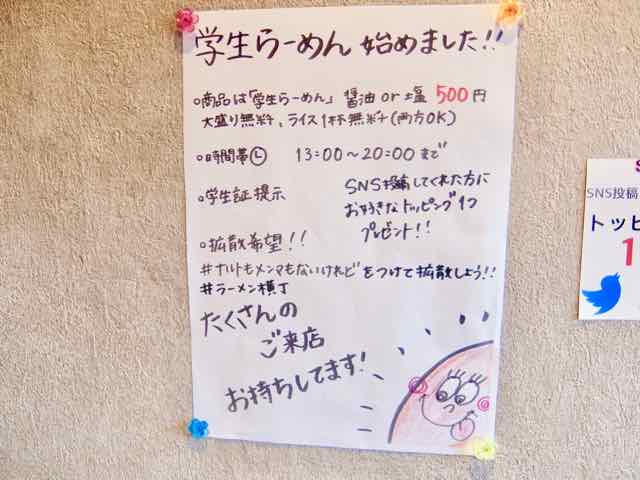 学生らーめん 始めました!!
○商品は「学生らーめん」 醤油 or 塩 500円
大盛り無料、ライス1杯無料(両方OK)
○時間帯Ⓛ 13:00〜20:00まで
○学生証提示
SNS投稿してくれた方に
お好きなトッピング1つ
プレゼント!!
○拡散希望!!
#ナルトもメンマもないけれど をつけて拡散しよう!!
#ラーメン横丁
たくさんの
ご来店
お持ちしてます!
SNS投稿
トッピ
1